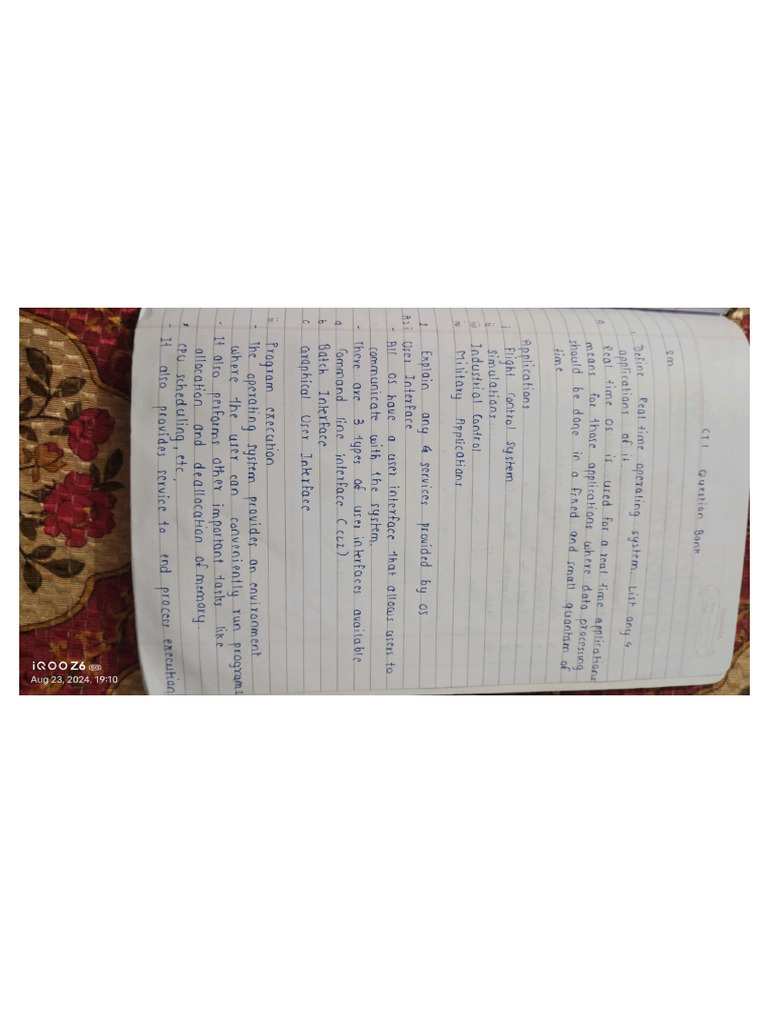 CT 1 Question Bank
2m
1. Define Real time operating system. List any 4
applications of it
A Real time OS is used for a real time applications
means for those applications where data processing
should be done in a fixed and small quantam of
time
Applications
i Flight Control system
ii Simulations.
iii Industrial Control
iv Military Applications
2 Explain any 4 services provided by OS
A2 i User Interface
- All OS have a user interface that allows users to
communicate with the system.
- There are 3 types of user interfaces available
a Command line interface (CLI)
b Batch Interface
c Graphical User Interface
ii Program execution
- The operating system provides an environment
where the user can conveniently run programs
- It also performs other important tasks like
allocation and deallocation of memory,
CPU scheduling, etc.
- It also provides service to end process execution
iQOO Z6 5G
Aug 23, 2024, 19:10